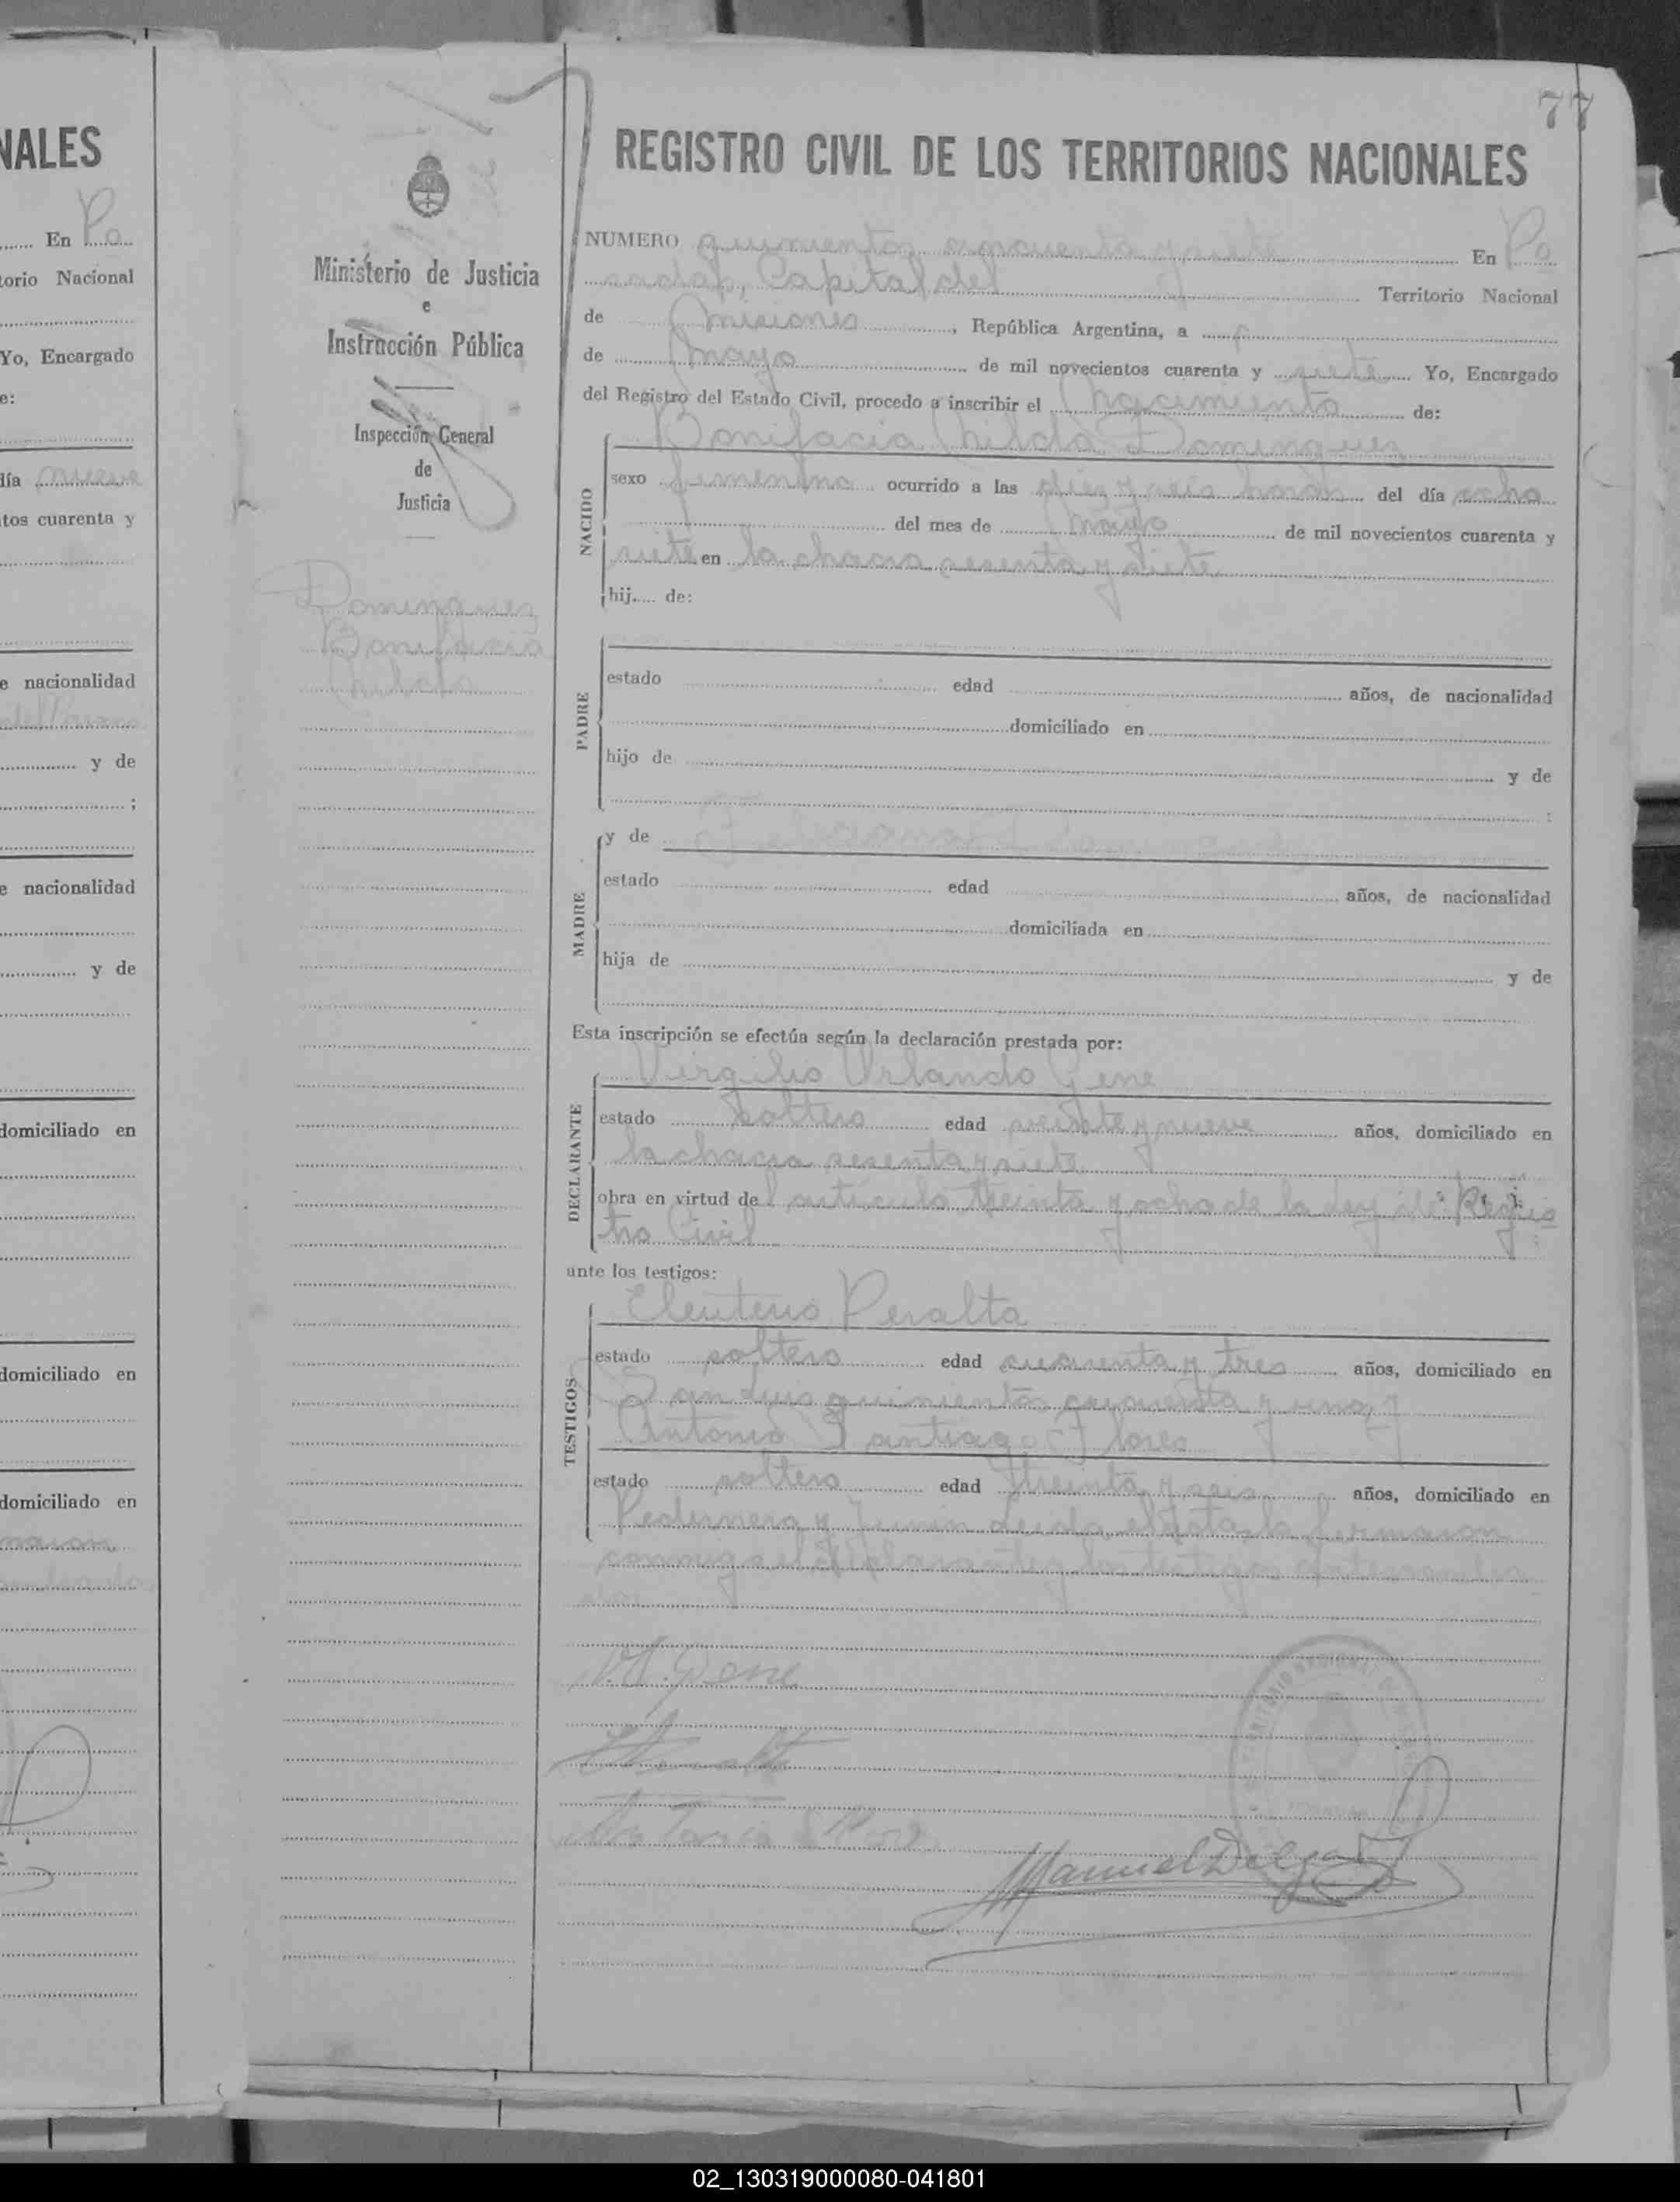 77
NALES
En Po
torio Nacional
Yo, Encargado
e:
día nueve
tos cuarenta y
e nacionalidad
y de
;
e nacionalidad
y de
domiciliado en
domiciliado en
domiciliado en
Ministerio de Justicia
e
Instrucción Pública
Inspección General
de
Justicia
Domínguez
Bonifacia
Hilda
REGISTRO CIVIL DE LOS TERRITORIOS NACIONALES
NUMERO quinientos cincuenta y siete En Po
sadas, Capital del Territorio Nacional
de Misiones, República Argentina, a
de Mayo de mil novecientos cuarenta y siete Yo, Encargado
del Registro del Estado Civil, procedo a inscribir el Nacimiento de:
Bonifacia Hilda Dominguez
NACIDO
sexo femenino ocurrido a las diez y seis horas del día ocho
del mes de Mayo de mil novecientos cuarenta y
siete en la chacra sesenta y siete
hij.... de:
PADRE
estado edad años, de nacionalidad
domiciliado en
hijo de y de
;
MADRE
y de
estado edad años, de nacionalidad
domiciliada en
hija de y de
Esta inscripción se efectúa según la declaración prestada por:
DECLARANTE
Virgilio Orlando Gene
estado soltero edad veinte y nueve años, domiciliado en
la chacra sesenta y siete
obra en virtud del artículo treinta y ocho de la ley de Regis
tro Civil
ante los testigos:
TESTIGOS
Eleuterio Peralta
estado soltero edad cuarenta y tres años, domiciliado en
San Luis quinientos cuarenta y uno, y
Antonio Santiago Flores
estado soltero edad treinta y seis años, domiciliado en
Pedernera y Junín leida el acta la firmaron
conmigo el declarante y los testigos
V.O. Gene
Manuel Delgado
02_130319000080-041801